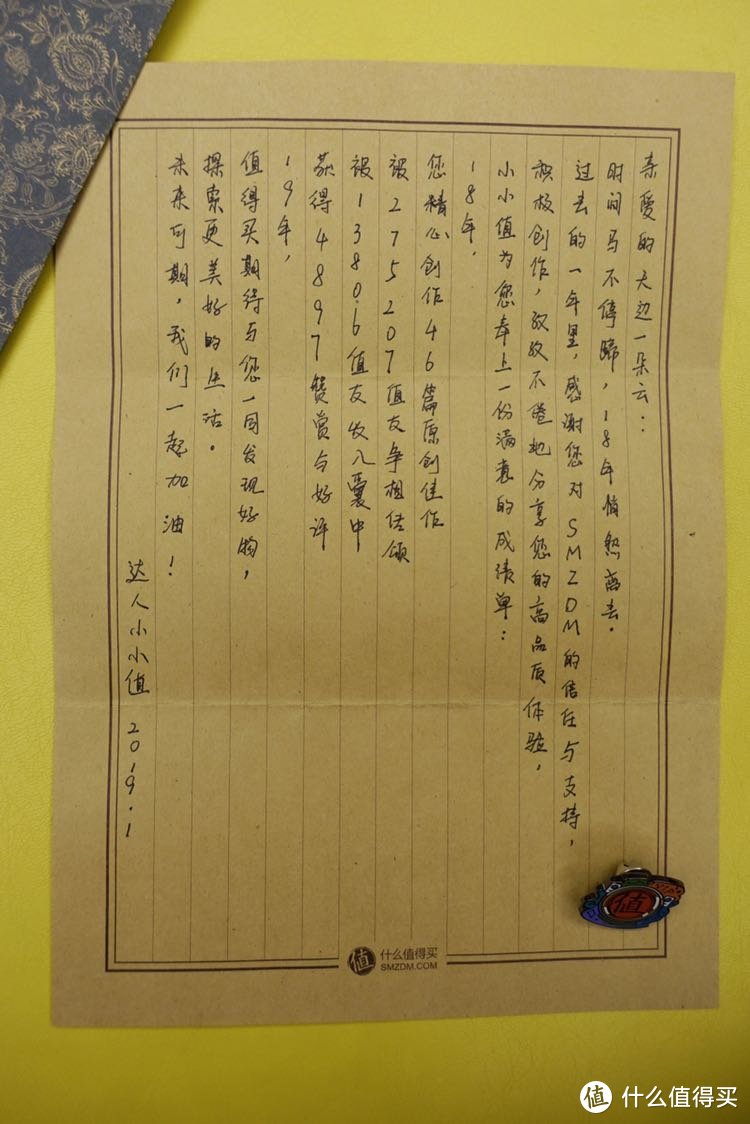 亲爱的天边一朵云：
时间马不停蹄，18年悄然离去。
过去的一年里，感谢您对SMZDM的信任与支持，
积极创作，孜孜不倦地分享您的高品质体验，
小小值为您奉上一份满意的成绩单：
18年，
您精心创作46篇原创佳作
被275207值友争相传颂
被13806值友收入囊中
获得4897赞赏与好评
19年，
值得买期待与您一同发现好物，
探索更美好的生活。
未来可期，我们一起加油！
达人小小值 2019.1
值
值 什么值得买
SMZDM.COM
值 什么值得买